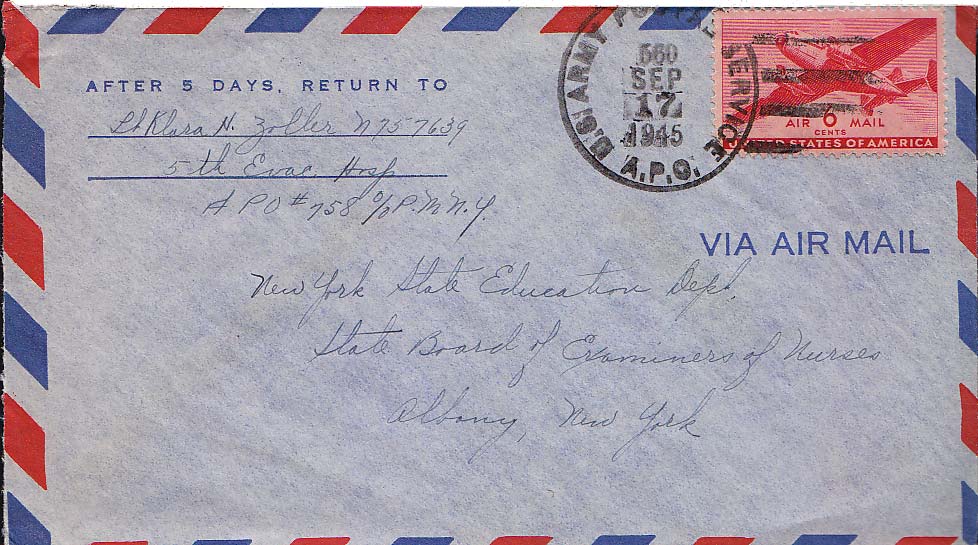 AFTER 5 DAYS, RETURN TO
Lt Klara N. Zoller N757639
5th Evac Hosp
APO #758 c/o P.M. N.Y.
U.S. ARMY POSTAL SERVICE
560
SEP
17
1945
A.P.O.
AIR 6 MAIL
CENTS
UNITED STATES OF AMERICA
VIA AIR MAIL
New York State Education Dept.
State Board of Examiners of Nurses
Albany, New York